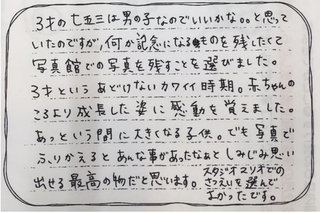 3才の七五三は男の子なのでいいかな。。と思って
いたのですが、何か記念になるものを残したくて
写真館での写真を残すことを選びました。
3才という あどけないカワイイ時期。赤ちゃんの
ころより成長した姿に感動を覚えました。
あっという間に大きくなる子供。でも写真で
ふりかえると あんな事があったなぁとしみじみ思い
出せる最高の物だと思います。
スタジオマリオでの
さつえいを選んで
よかったです。